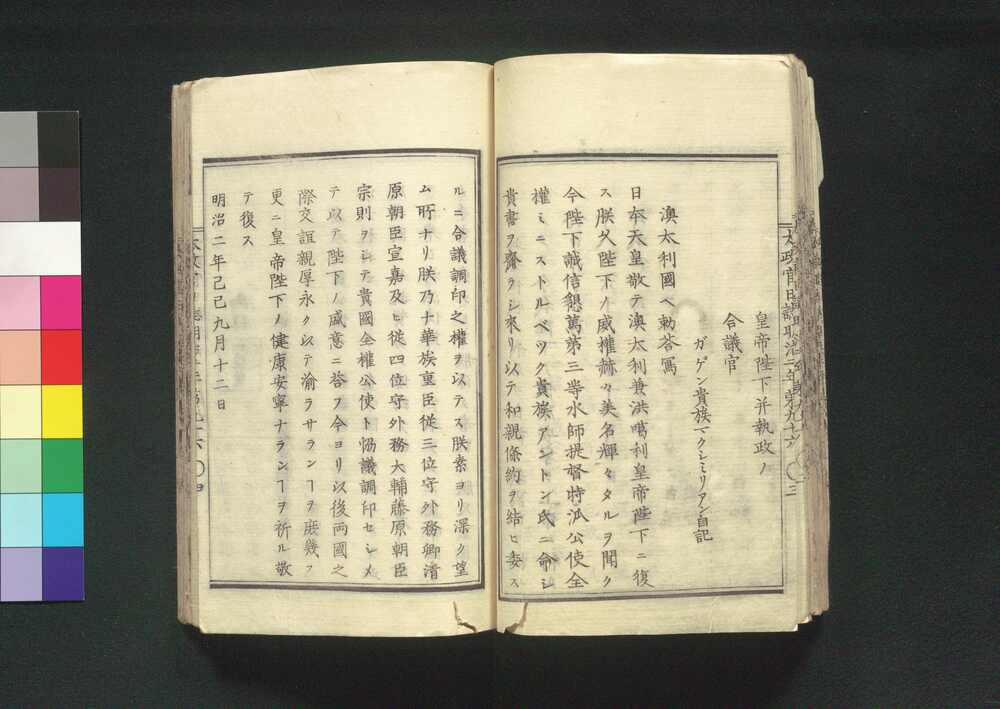 皇帝陛下并執政ノ
合議官
ガゲン貴族マクシミリアン自記
澳太利國ヘ勅答寫
日本天皇敬テ澳太利兼洪噶利皇帝陛下ニ復
ス朕久陛下ノ威權赫々美名輝々タルヲ聞ク
今陛下誠信懇篤第三等水師提督特派公使全
權ミニストルペツク貴族アントン氏ニ命シ
貴書ヲ齎ラシ來リ以テ和親條約ヲ結ヒ委ス
ルニ合議調印之權ヲ以テス朕素ヨリ深ク望
ム所ナリ朕乃チ華族重臣從三位守外務卿清
原朝臣宣嘉及ヒ從四位守外務大輔藤原朝臣
宗則ヲシテ貴國全權公使ト協議調印セシメ
テ以テ陛下ノ盛意ニ答フ今ヨリ以後両國之
際交誼親厚永ク以テ渝ラサランヿヲ庶幾フ
更ニ皇帝陛下ノ健康安寧ナランヿヲ祈ル敬
テ復ス
明治二年己巳九月十二日